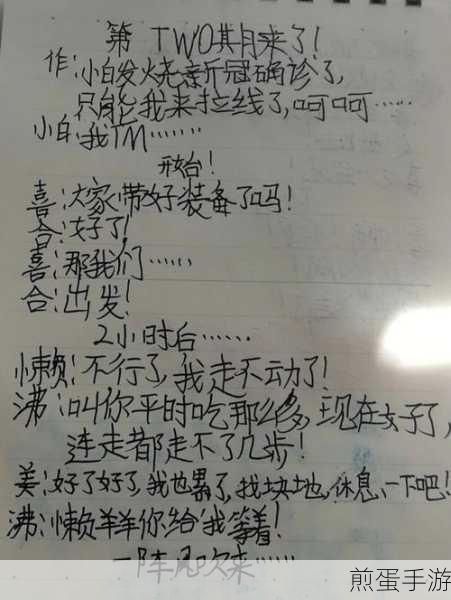 第 TWO期来了!
作:小白发烧新冠确诊了,
只能我来拉线了,呵呵……
小白:我TM……
开始!
喜:大家带好装备了吗!
合:好了!
喜:那我们……
合:出发!
2小时后……
懒:不行了,我走不动了!
沸:叫你平时吃那么多,现在好了,
连走都走不了几步!
美:好了好了,我也累了,找块地,休息一下吧!
沸:懒羊羊你给我等着!
一阵风吹来……
煎蛋手游